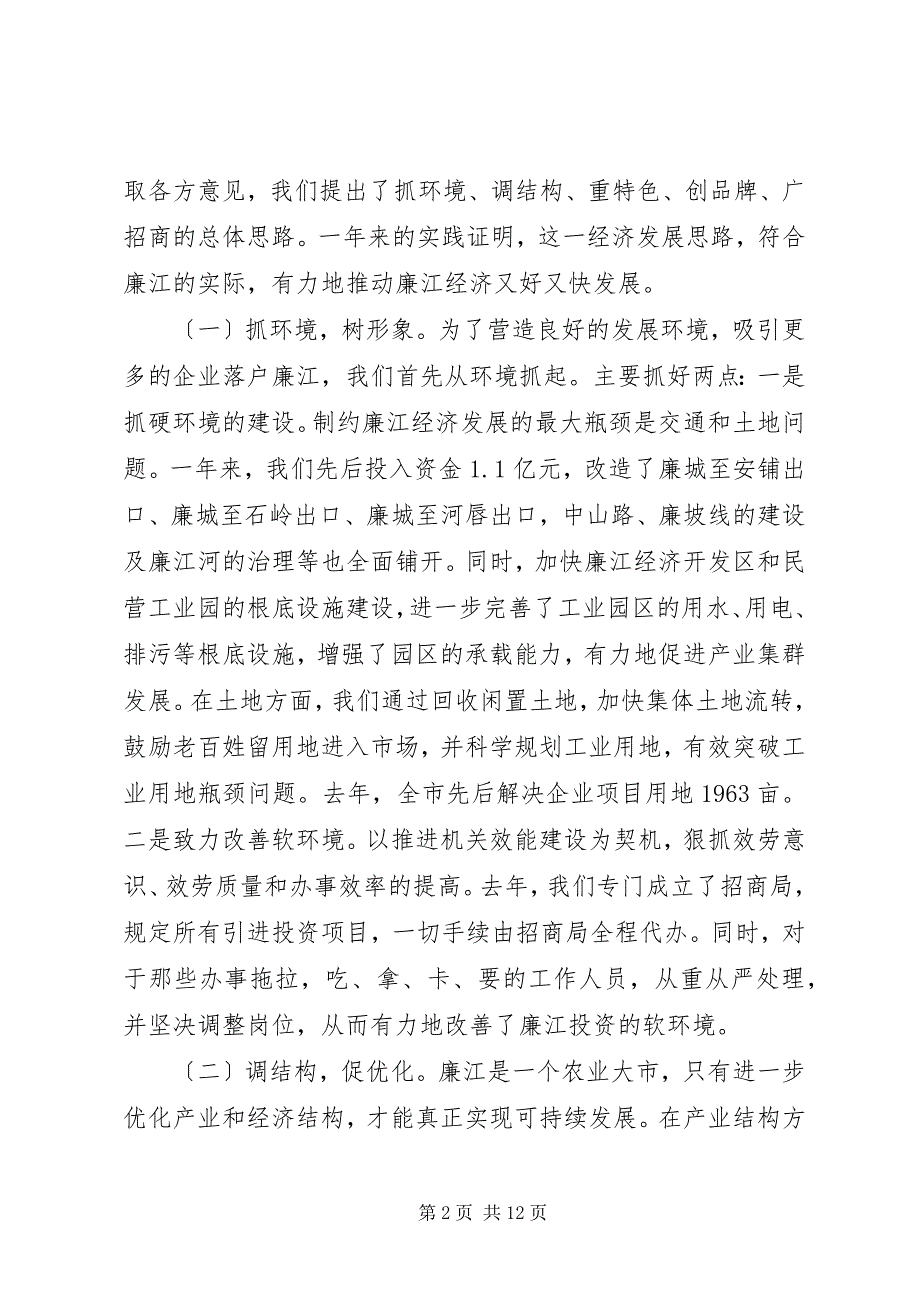 取各方意见，我们提出了抓环境、调结构、重特色、创品牌、广
招商的总体思路。一年来的实践证明，这一经济发展思路，符合
廉江的实际，有力地推动廉江经济又好又快发展。
〔一〕抓环境，树形象。为了营造良好的发展环境，吸引更
多的企业落户廉江，我们首先从环境抓起。主要抓好两点：一是
抓硬环境的建设。制约廉江经济发展的最大瓶颈是交通和土地问
题。一年来，我们先后投入资金 1.1 亿元，改造了廉城至安铺出
口、廉城至石岭出口、廉城至河唇出口，中山路、廉坡线的建设
及廉江河的治理等也全面铺开。同时，加快廉江经济开发区和民
营工业园的根底设施建设，进一步完善了工业园区的用水、用电、
排污等根底设施，增强了园区的承载能力，有力地促进产业集群
发展。在土地方面，我们通过回收闲置土地，加快集体土地流转，
鼓励老百姓留用地进入市场，并科学规划工业用地，有效突破工
业用地瓶颈问题。去年，全市先后解决企业项目用地 1963 亩。
二是致力改善软环境。以推进机关效能建设为契机，狠抓效劳意
识、效劳质量和办事效率的提高。去年，我们专门成立了招商局，
规定所有引进投资项目，一切手续由招商局全程代办。同时，对
于那些办事拖拉，吃、拿、卡、要的工作人员，从重从严处理，
并坚决调整岗位，从而有力地改善了廉江投资的软环境。
〔二〕调结构，促优化。廉江是一个农业大市，只有进一步
优化产业和经济结构，才能真正实现可持续发展。在产业结构方
第 2 页 共 12 页